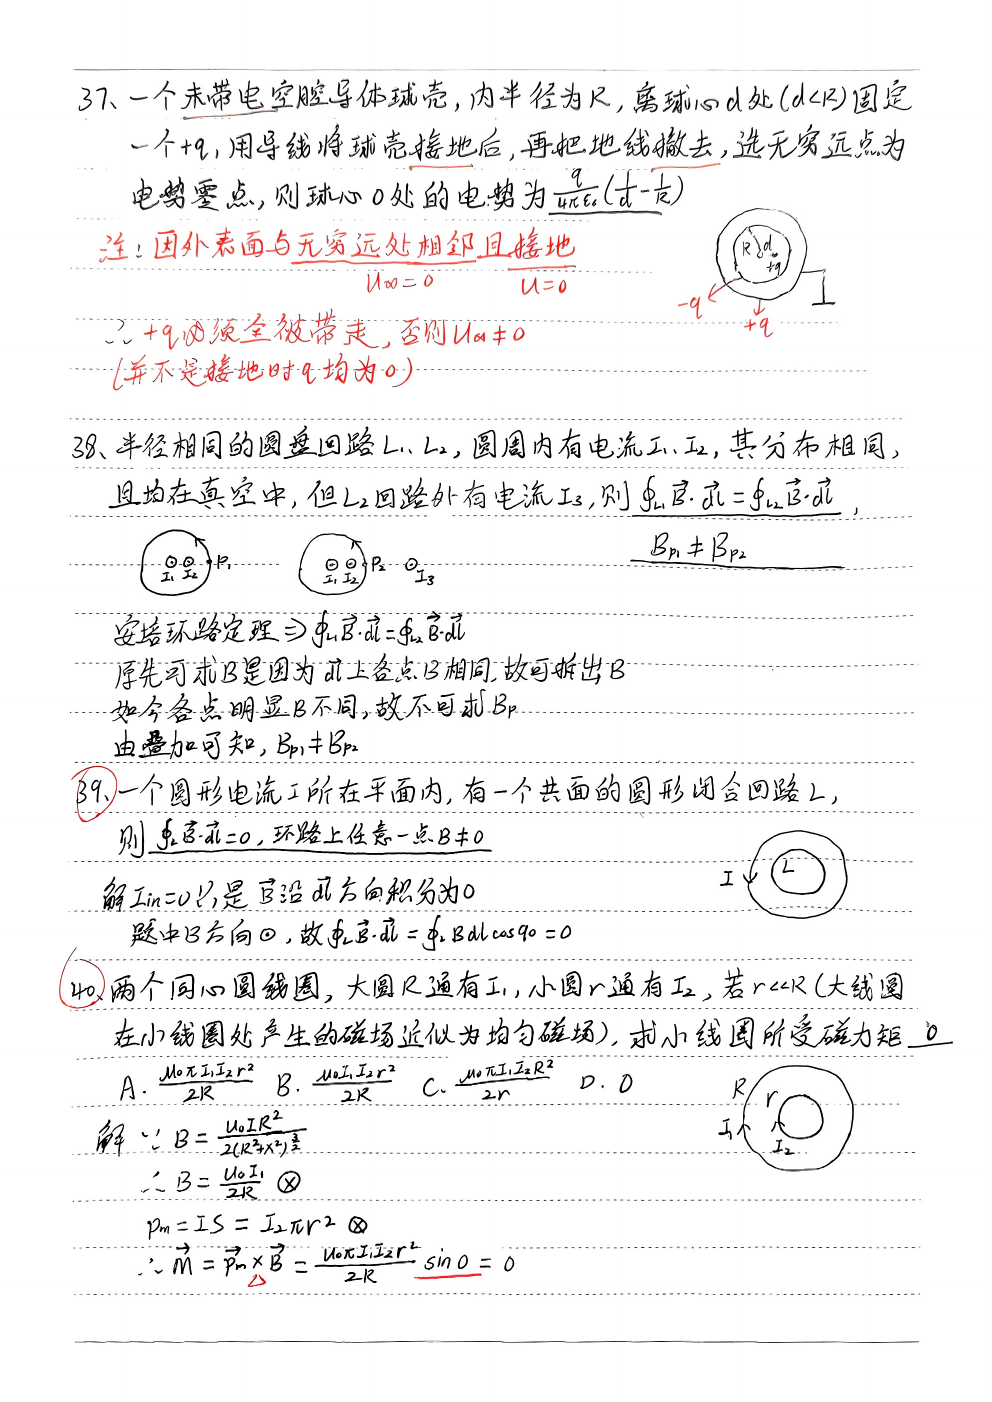 37、一个未带电空腔导体球壳，内半径为R，离球心d处(d<R)固定
一个+q，用导线将球壳接地后，再把地线撤去，选无穷远点为
电势零点，则球心O处的电势为 q/4πε₀(1/d-1/R)
注：因外表面与无穷远处相邻且接地
U∞=0 U=0
R d +q
-q +q
∴ +q必须全被带走，否则U∞≠0
(并不是接地时q均为0)
38、半径相同的圆盘回路L₁、L₂，圆周内有电流I₁、I₂，其分布相同，
且均在真空中，但L₂回路外有电流I₃，则∮L₁B⃗·dl⃗=∮L₂B⃗·dl⃗，
Bp₁≠Bp₂
I₁ I₂ P₁ I₁ I₂ P₂ I₃
安培环路定理⇒∮L₁B⃗·dl⃗=∮L₂B⃗·dl⃗
原先可求B是因为dl⃗上各点B相同，故可拆出B
如今各点明显B不同，故不可求Bp
由叠加可知，Bp₁≠Bp₂
39、一个圆形电流I所在平面内，有一个共面的圆形闭合回路L，
则∮LB⃗·dl⃗=0，环路上任意一点B≠0
I L
解 Iin=0只是B⃗沿dl⃗方向积分为0
题中B方向⊙，故∮LB⃗·dl⃗=∮LBdlcos90=0
40、两个同心圆线圈，大圆R通有I₁，小圆r通有I₂，若r<<R(大线圈
在小线圈处产生的磁场近似为均匀磁场)，求小线圈所受磁力矩 0
A. μ₀πI₁I₂r²/2R B. μ₀I₁I₂r²/2R C. μ₀πI₁I₂R²/2r D. 0
R r I₁ I₂
解 ∵ B=μ₀IR²/2(R²+x²)^(3/2)
∴ B=μ₀I₁/2R ⊗
pm=IS=I₂πr² ⊗
∴ M⃗=p⃗m×B⃗=μ₀πI₁I₂r²/2R sin0=0